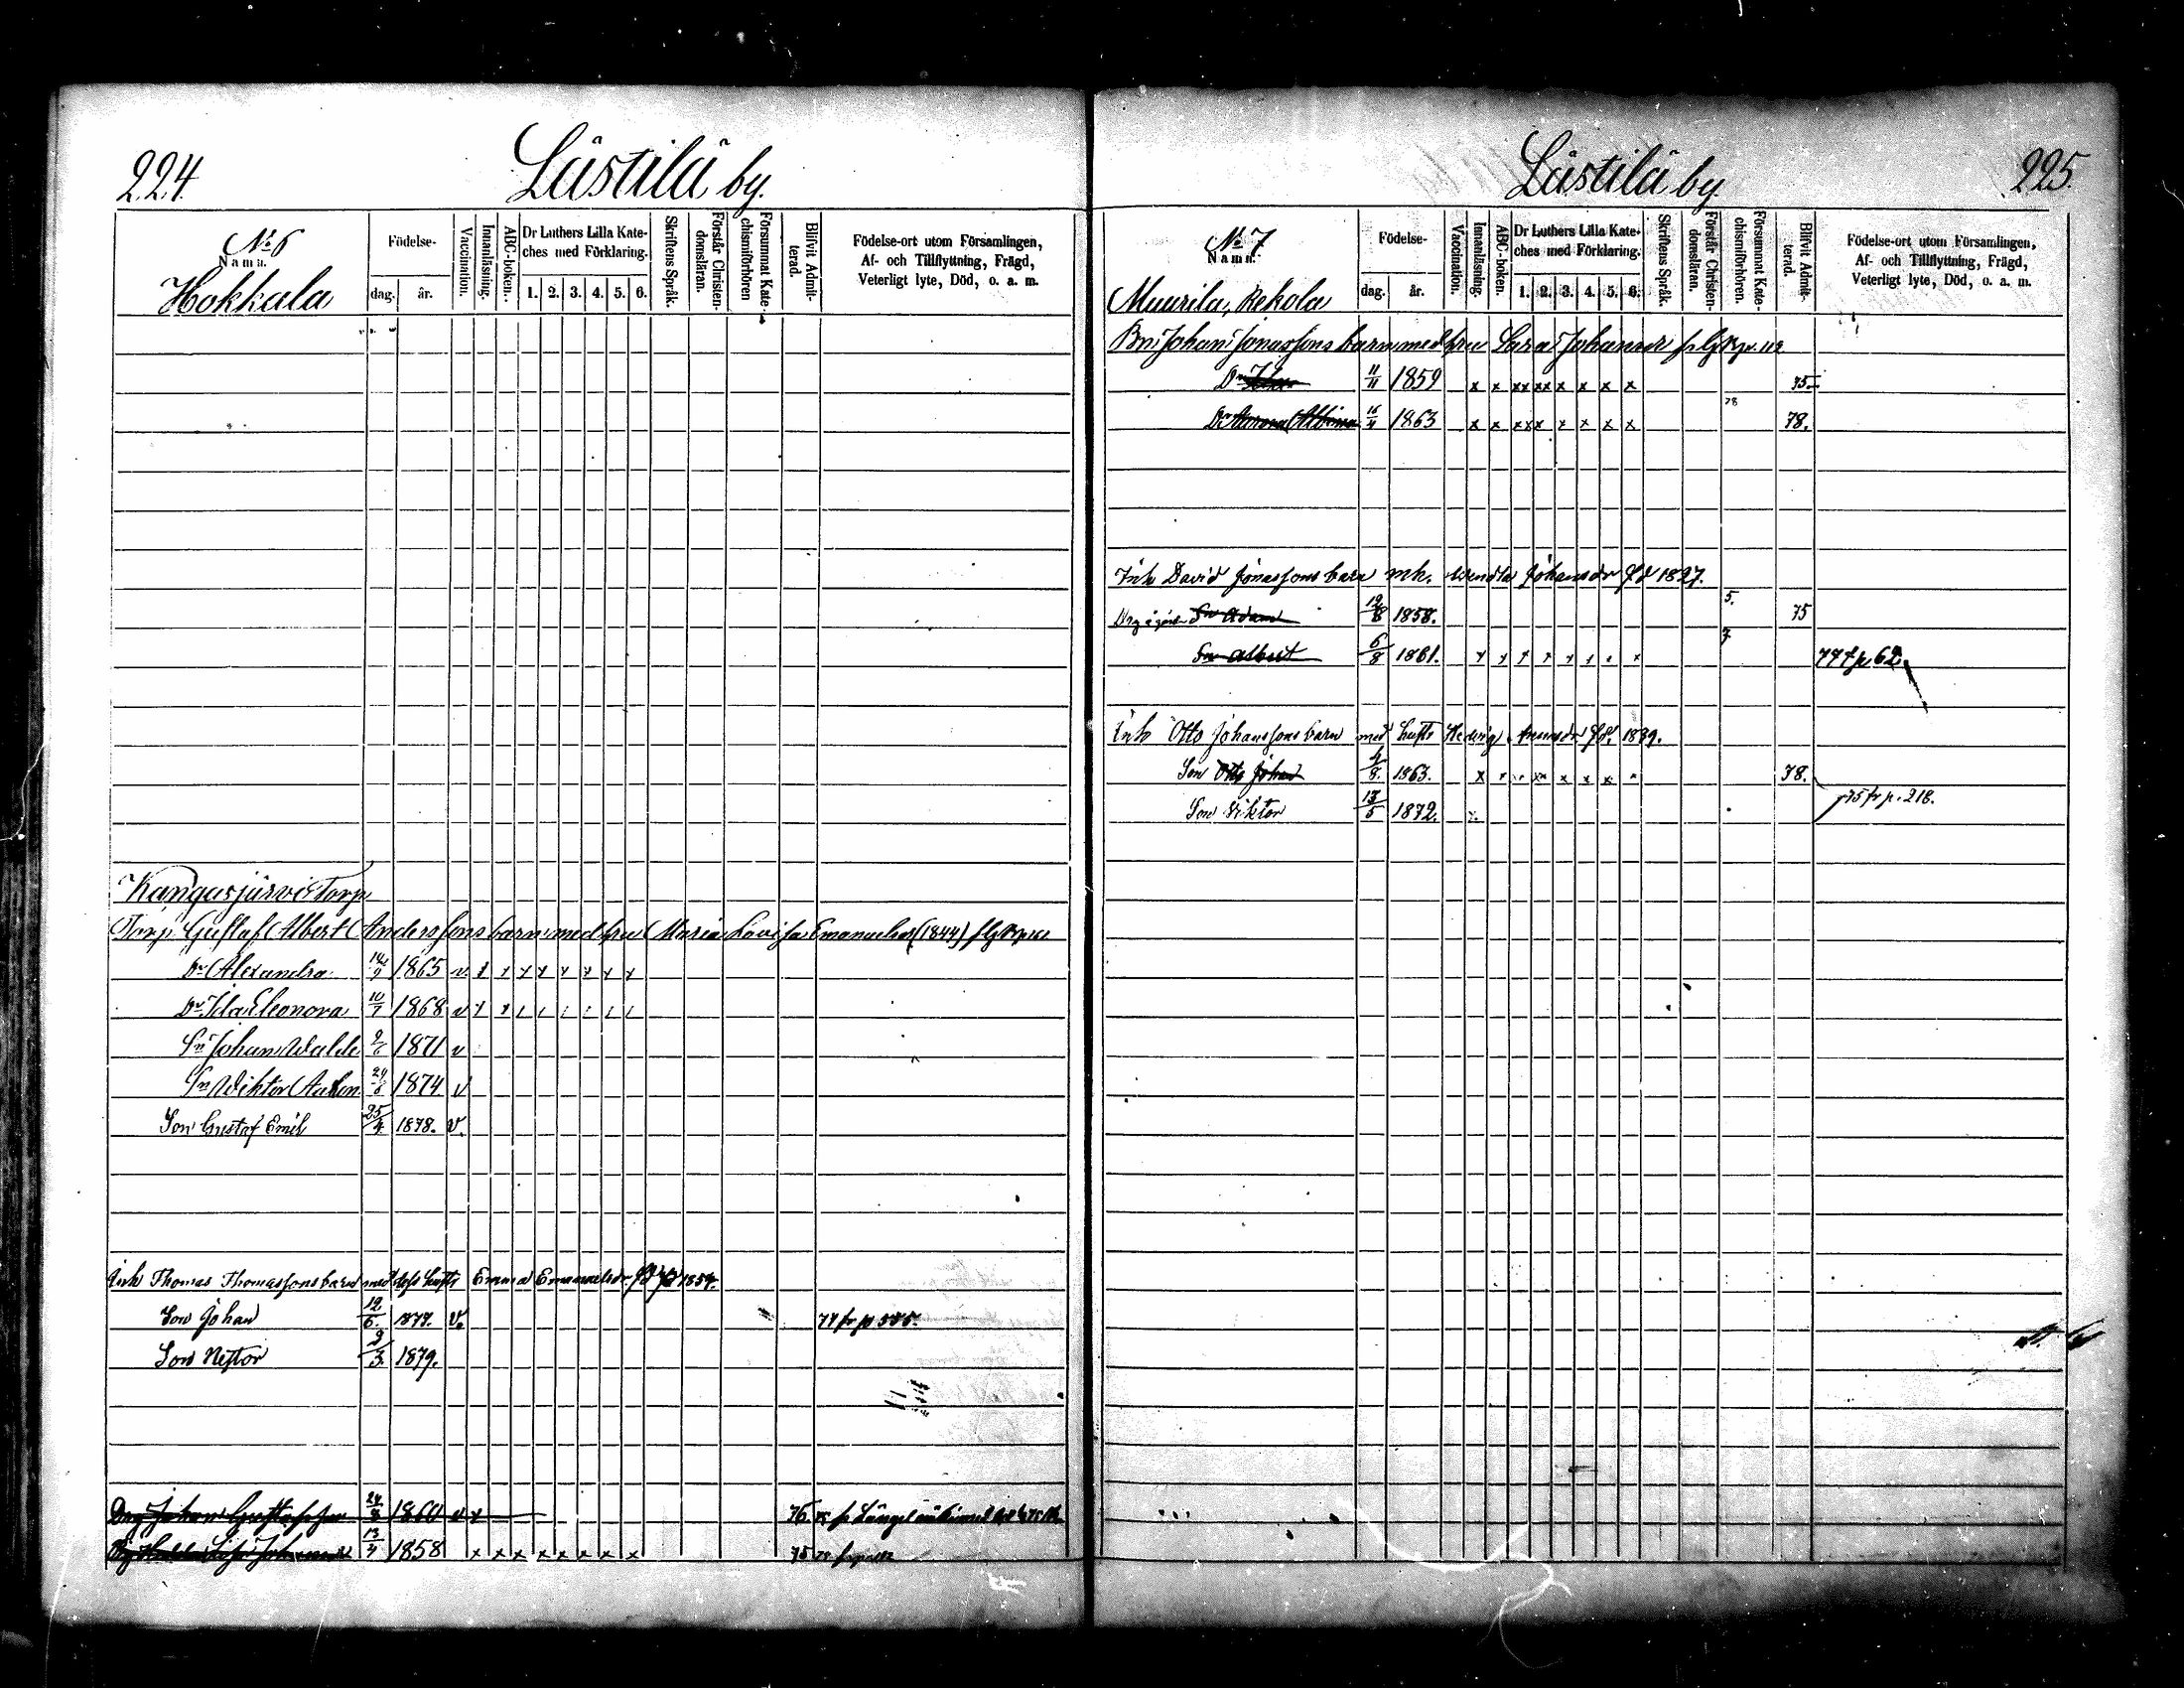 224.
Lästilä by.
No 6
Namn.
Hokkala
Födelse-
dag. år.
Vaccination.
Innanläsning.
ABC-boken.
Dr Luthers Lilla Kate-
ches med Förklaring.
1. 2. 3. 4. 5. 6.
Skriftens Språk.
Förstår Christen-
domsläran.
Försummat Kate-
chismiförhören
Blifvit Admit-
terad.
Födelse-ort utom Församlingen,
Af- och Tillflyttning, Frägd,
Veterligt lyte, Död, o. a. m.
Kangasjärvi Torp
Torp. Gustaf Albert Anderssons barn med hru Maria Lovisa Emanuelsdr (1844)
Dr Alexandra 14/9 1865 v x x x x x x x x
Dr Ida Eleonora 10/7 1868 v
Sn Johan Walde 1871 v
Sn Wiktor 24/6 1874 v
Son Gustaf Emil 25/4 1878. v.
Inh Thomas Thomassons barn med dess hustr Emma Emanuelsdr
Son Johan 12/5. 1877. v.
Son Nestor 9/3 1879.
Drg Johan Gustafsson 24/8 1860 v x 76.
13/4 1858 x x x x x x x x 75
Lästilä by.
225.
No 7
Namn.
Muurila, Rekola
Födelse-
dag. år.
Vaccination.
Innanläsning.
ABC-boken.
Dr Luthers Lilla Kate-
ches med Förklaring.
1. 2. 3. 4. 5. 6.
Skriftens Språk.
Förstår Christen-
domsläran.
Försummat Kate-
chismiförhören.
Blifvit Admit-
terad.
Födelse-ort utom Församlingen,
Af- och Tillflyttning, Frägd,
Veterligt lyte, Död, o. a. m.
Bn: Johan Jonassons barn med hru Sara Johansdr
Dr 11/11 1859 x x xx xx x x x x 75
Dr Aurora Albina 1863 x x xxx x x x x 78 78.
Inh David Jonassons barn mh. Wendla Johansdr fd 1827.
Sn Adam 12/8 1858. 5. 75
Sn Albert 6/8 1861. x x x x x x x x 7 77 t p 62.
Inh Otto Johanssons barn med hustr Hedvig fd. 1839.
Son Otto Johan 1863. 78.
Son Viktor 13/5 1872. 75 fr p. 218.